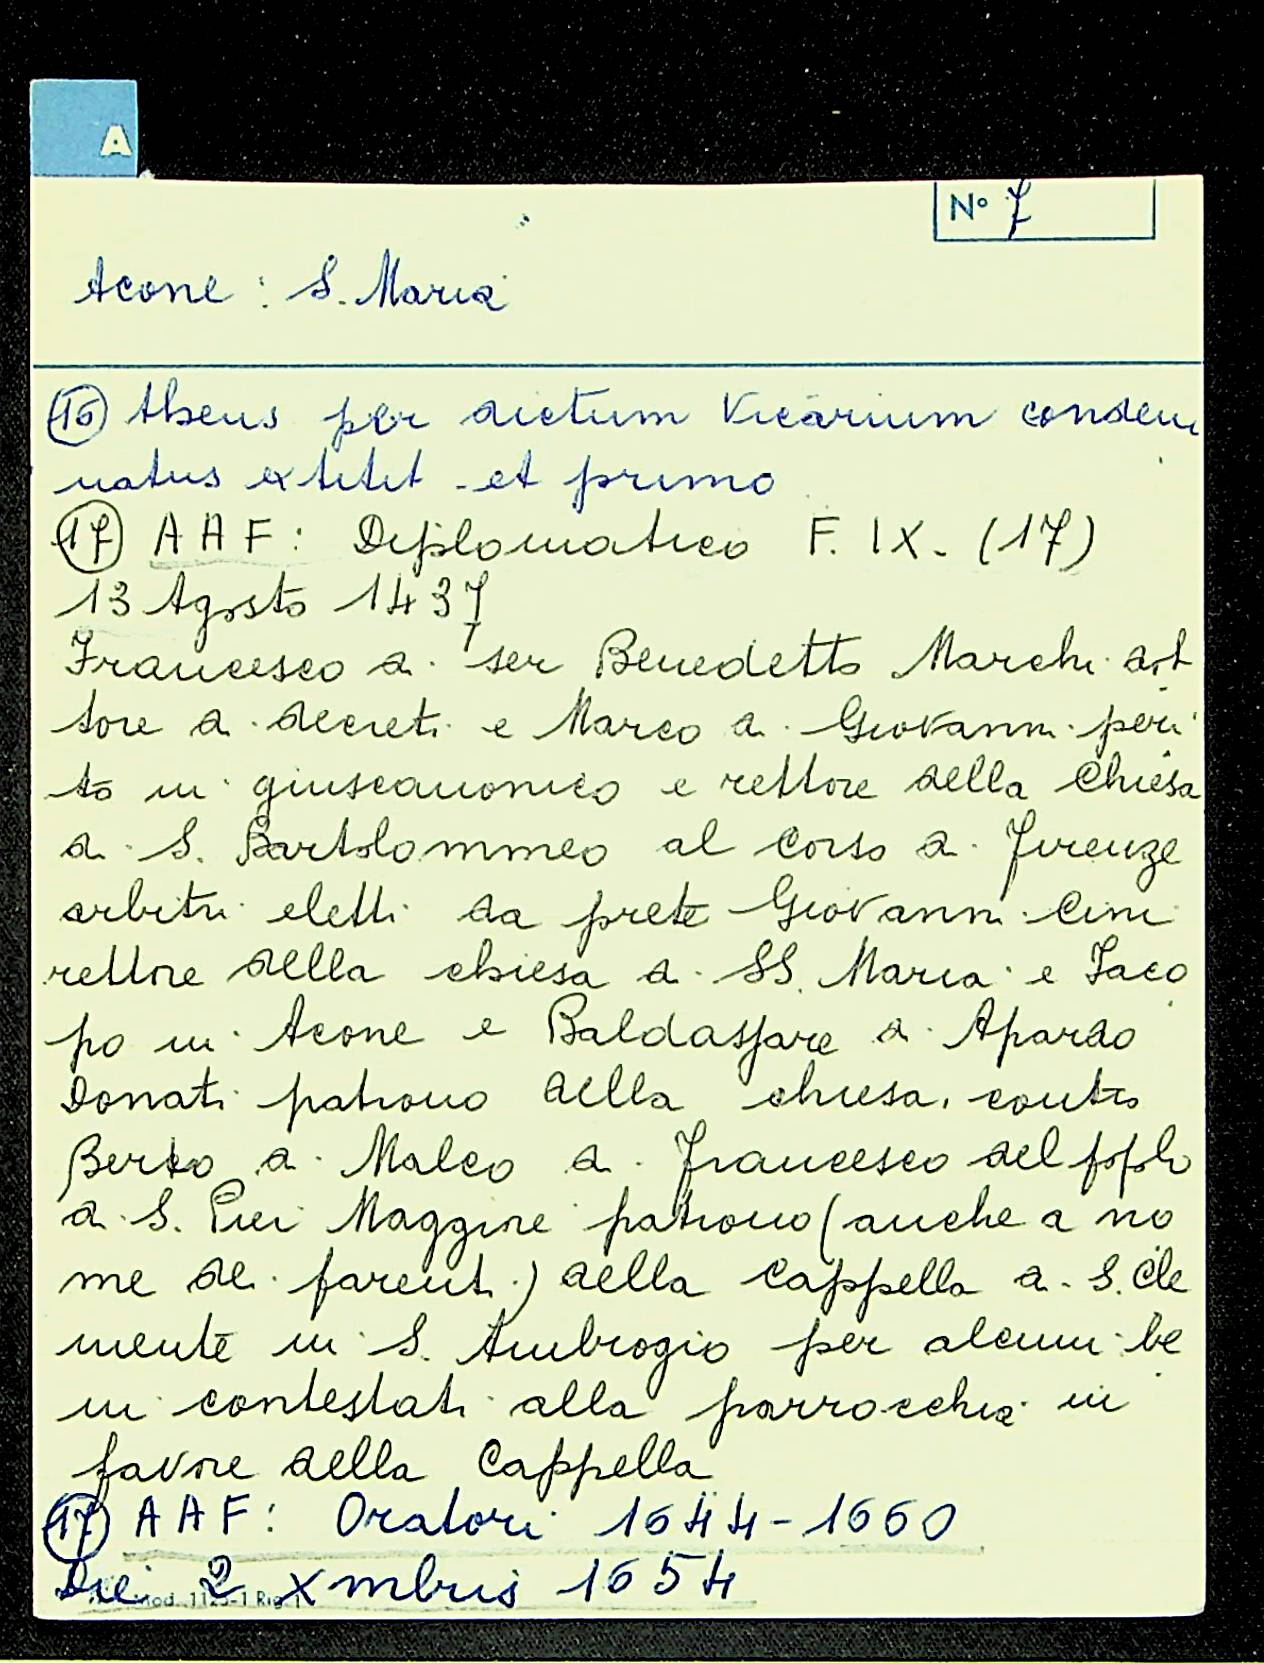 A
N° 7
Acone : S. Maria
(16) Absens per dictum Vicarium condem
natus extitit - et primo
(17) A A F : Diplomatico F. IX. (17)
13 Agosto 1437
Francesco di ser Benedetto Marchi dot
tore di decreti e Marco di Giovanni peri
to in giuscanonico e rettore della Chiesa
di S. Bartolommeo al corso di Firenze
arbitri eletti da prete Giovanni Cini
rettore della chiesa di SS. Maria e Iaco
po in Acone e Baldassare di Apardo
Donati patrono della chiesa, contro
Berto di Matteo di Francesco del poplo
di S. Pier Maggiore patrono (anche a no
me dei parenti) della cappella di S. Cle
mente in S. Ambrogio per alcuni be
ni contestati alla parrocchia in
favore della Cappella
(17) A A F : Oratori 1644-1660
Die 2 Xmbris 1654